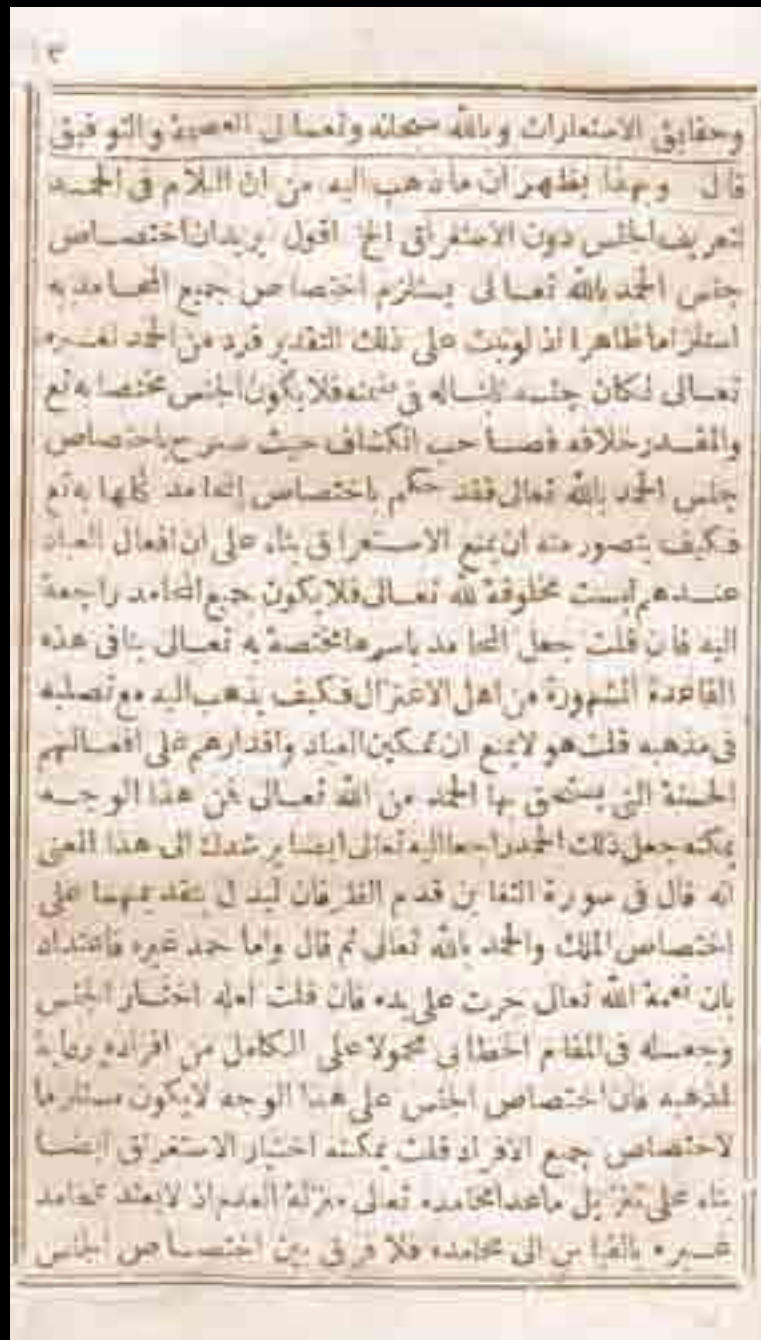 ٣
وحقايق الاستعارات وبالله سبحانه وتعمالى العصمة والتوفيق
قال وبهذا يظهر ان ماذهب اليه من ان اللام فى الحمد
لتعريف الجنس دون الاستغراق الخ اقول يريدان اختصاص
جنس الحمد بالله تعالى يستلزم اختصاص جميع المحامد به
استلزاما ظاهرا اذ لوثبت على ذلك التقدير فرد من الحمد لغيره
تعالى لكان جنسه ثابتاله فى ضمنه فلايكون الجنس مختصا به تع
والمقدر خلافه فصاحب الكشاف حيث صرح باختصاص
جنس الحمد بالله تعالى فقد حكم باختصاص المحامد كلها به تع
فكيف يتصور منه ان يمنع الاستغراق بناء على ان افعال العباد
عندهم ليست مخلوقة لله تعالى فلايكون جميع المحامد راجعة
اليه فان قلت جعل المحامد باسرها مختصة به تعالى ينافى هذه
القاعدة المشهورة من اهل الاعتزال فكيف يذهب اليه مع تصلبه
فى مذهبه قلت هو لايمنع ان تمكين العباد واقدارهم على افعالهم
الحسنة التى يستحق بها الحمد من الله تعالى فمن هذا الوجه
يمكنه جعل ذلك الحمد راجعا اليه تعالى ايضا يرشدك الى هذا المعنى
انه قال فى سورة التغابن قدم الظرفان ليدل بتقديمهما على
اختصاص الملك والحمد بالله تعالى ثم قال واما حمد غيره فاعتداد
بان نعمة الله تعالى جرت على يده فان قلت لعله اختار الجنس
وجعله فى المقام الخطابى محمولا على الكامل من افراده رعاية
لمذهبه فان اختصاص الجنس على هذا الوجه لايكون مستلزما
لاختصاص جميع الافراد قلت يمكنه اختيار الاستغراق ايضا
بناء على تنزيل ماعدا محامده تعالى منزلة العدم اذ لايعتد بمحامد
غيره بالقياس الى محامده فلا فرق بين اختصاص الجنس